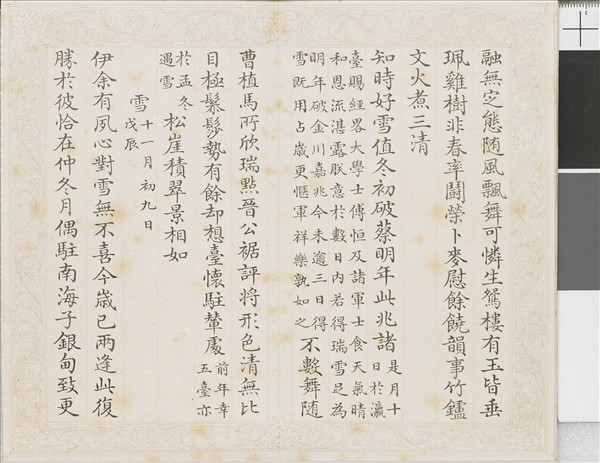 融無定態随風飄舞可憐生鴛樓有玉皆垂
珮雞樹非春率鬪榮卜麥慰餘饒韻事竹鑪
文火煮三清
知時好雪值冬初破蔡明年此兆諸
是月十
日於瀛
臺賜經畧大學士傅恒及諸軍士食天氣晴
和恩流湛露朕意於數日內若得瑞雪足為
明年破金川嘉兆今未逾三日得
雪既用占歲更愜軍祥樂孰如之
不數舞随
曹植馬所欣瑞點晉公裾評將形色清無比
目極鬖髿勢有餘却想臺懷駐輦處
前年幸
五臺亦
於孟冬
遇雪
松崖積翠景相如
雪
十一月初九日
戊辰
伊余有夙心對雪無不喜今歲已兩逢此復
勝於彼恰在仲冬月偶駐南海子銀甸致更